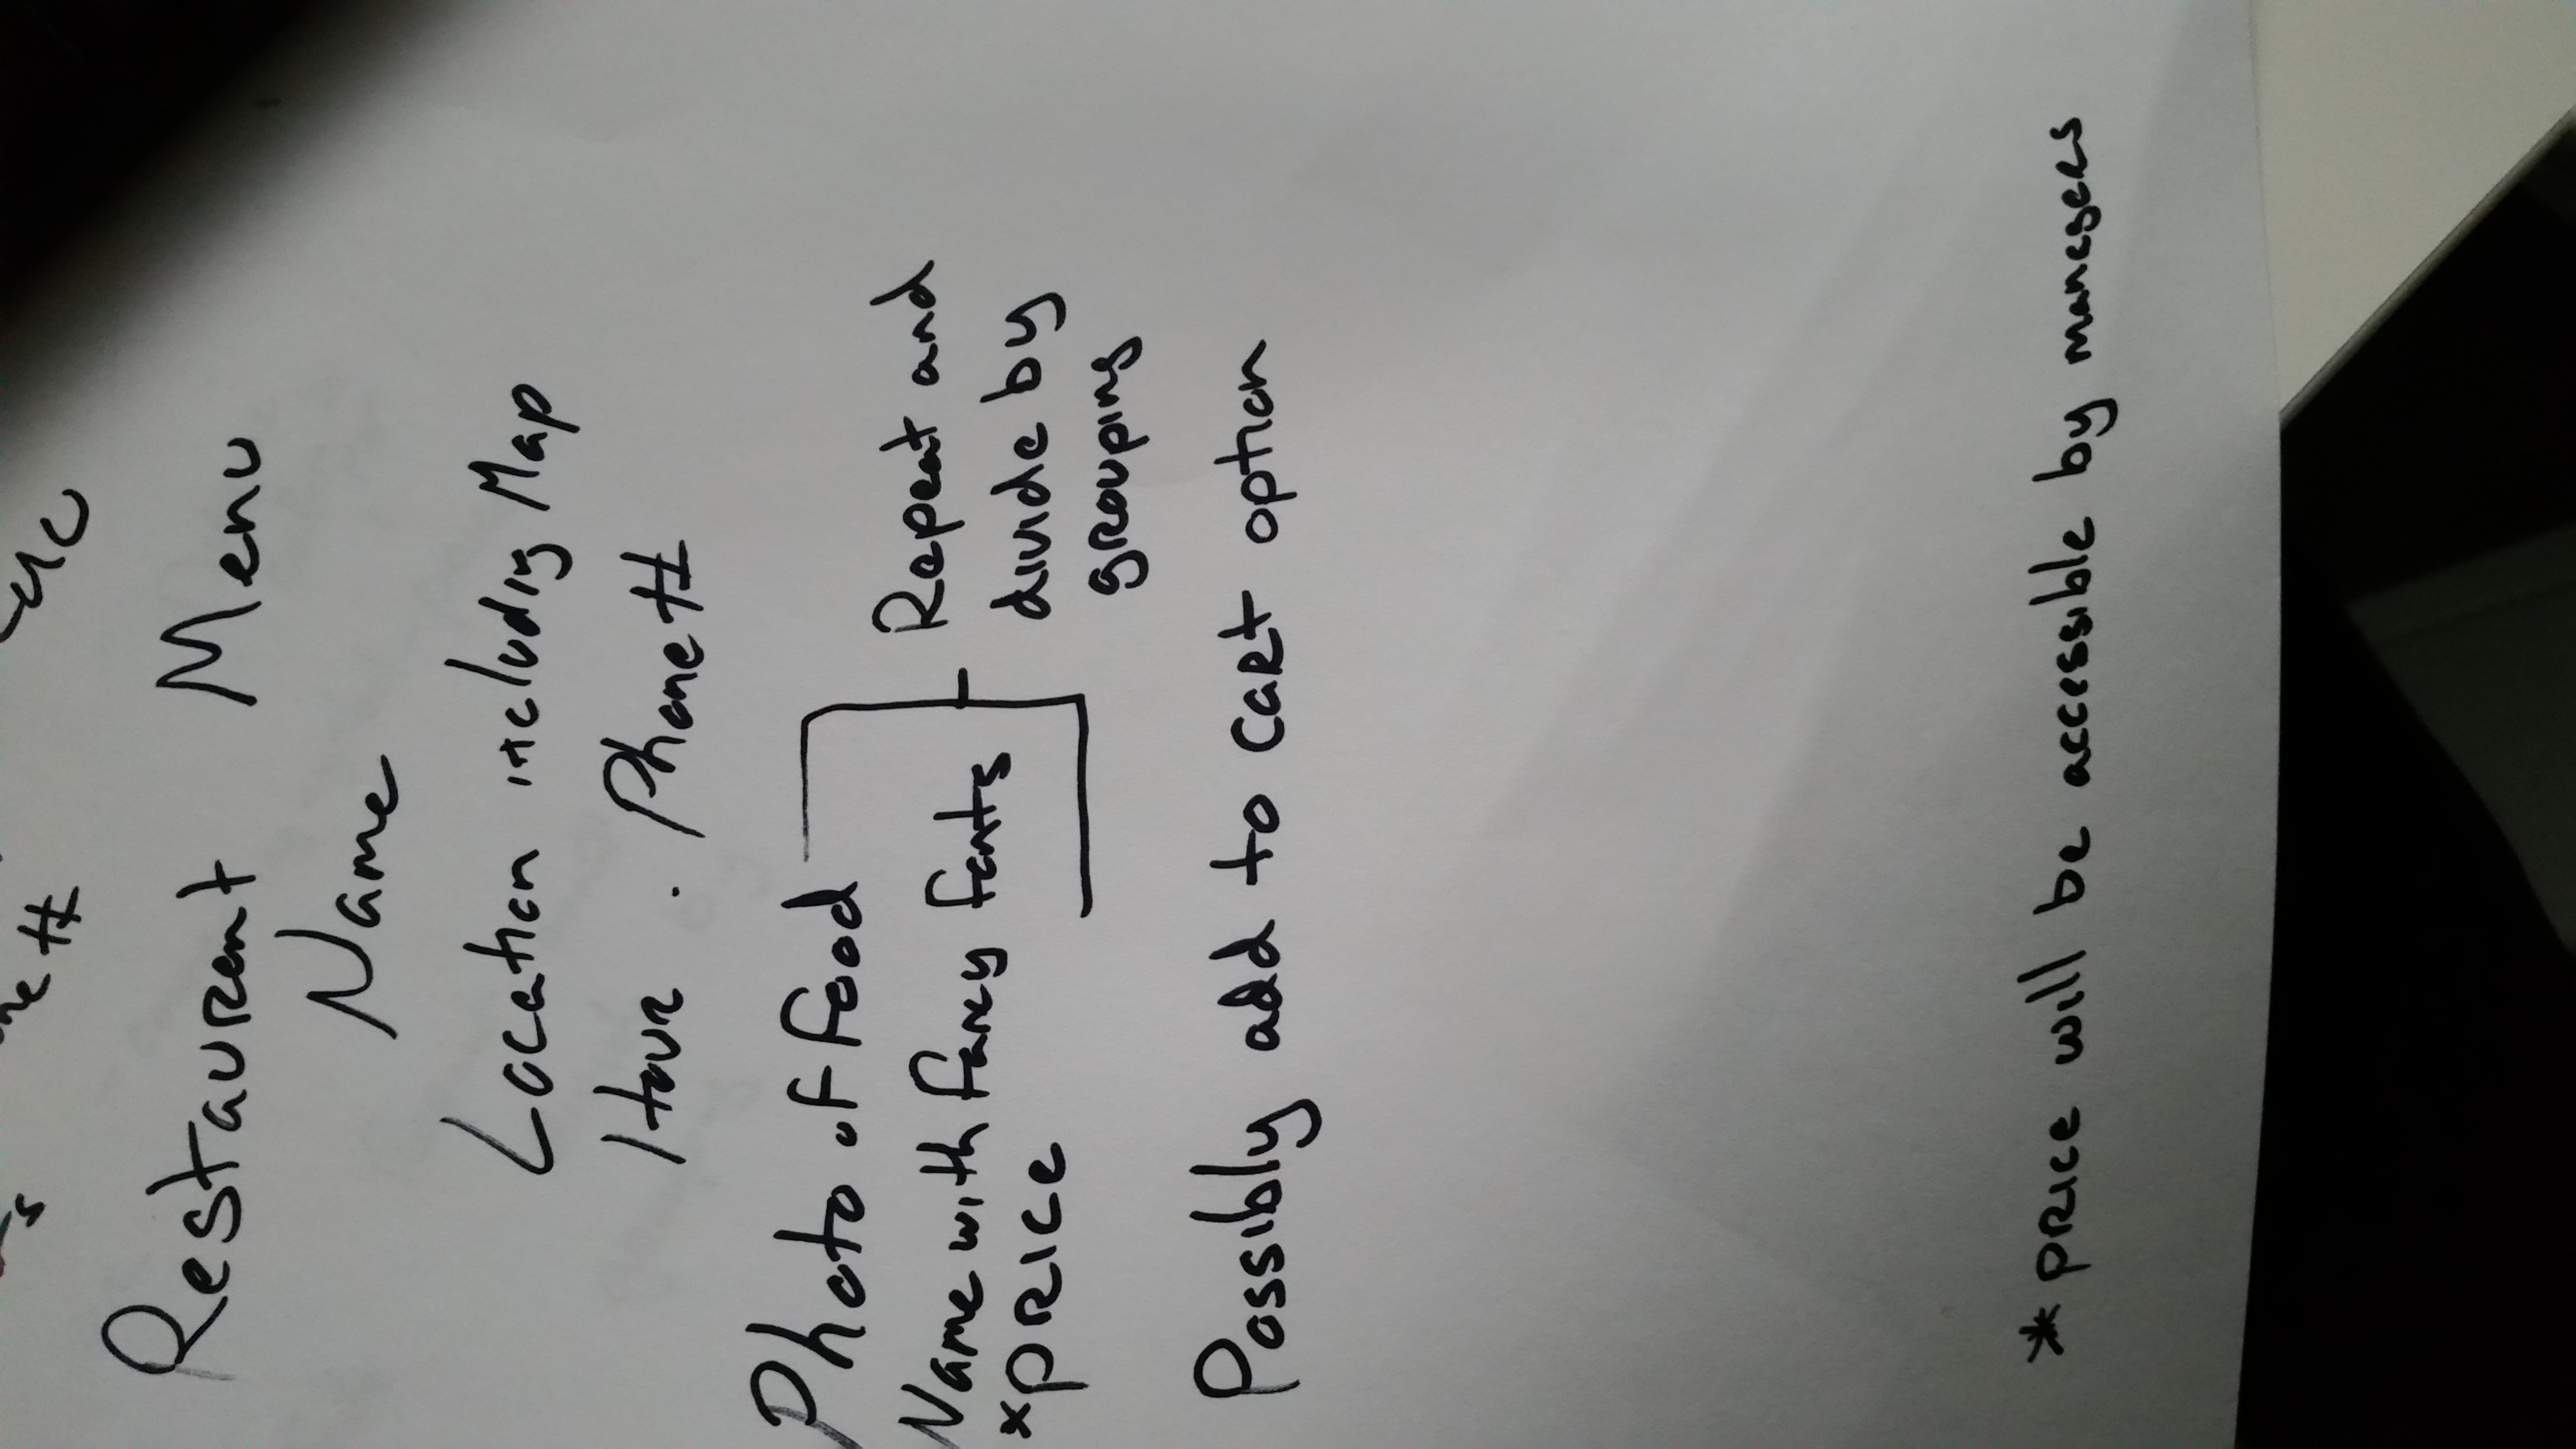 Restaurant Menu
Name
Location including Map
Hour . Phone #
Photo of food
Name with fancy fonts
*PRICE
Repeat and
divide by
grouping
Possibly add to cart option
* price will be accessible by managers